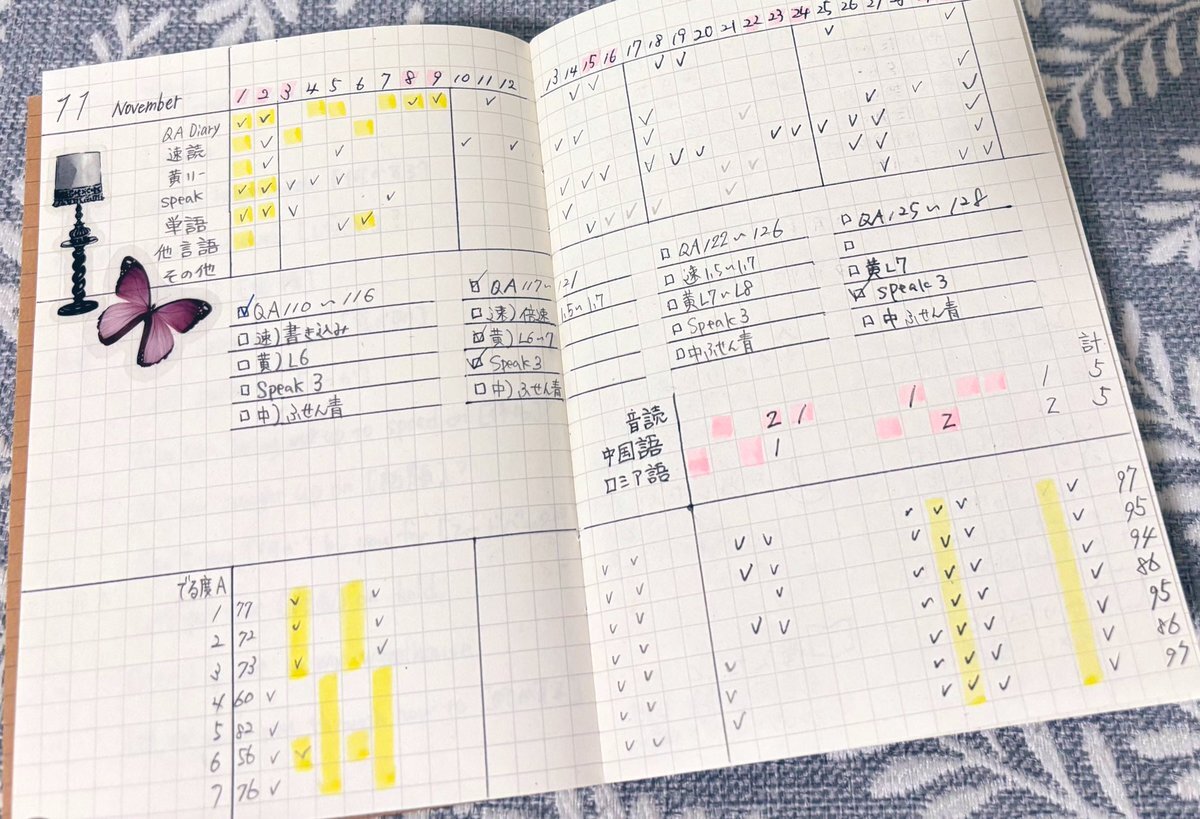 11 November
1 2 3 4 5 6 7 8 9 10 11 12
QA Diary
速読
黄リー
Speak
単語
他言語
その他
QA110〜116
速)書き込み
黄)L6
Speak 3
中)ふせん青
QA117〜121
速)倍速 1.5〜1.7
黄)L6〜7
Speak 3
中)ふせん青
でる度A
1 77
2 72
3 73
4 60
5 82
6 56
7 76
13 14 15 16 17 18 19 20 21 22 23 24 25 26 27
QA122〜126
速1.5〜1.7
黄L7〜L8
Speak 3
中ふせん青
QA125〜128
黄L7
Speak 3
中ふせん青
計
音読 2 1 1 1 5
中国語 1 2 2 5
ロシア語
97
95
94
86
95
86